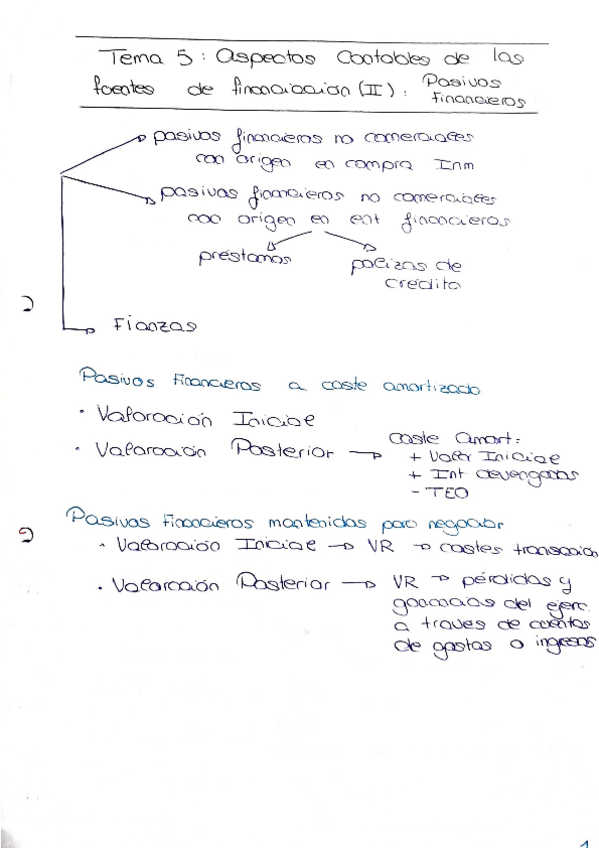 Tema 5: Aspectos Contables de las
fuentes de financiación (II): Pasivos
Financieros
pasivos financieros no comerciales
con origen en compra Inm
pasivos financieros no comerciales
con origen en ent financieras
préstamos
polizas de
crédito
Fianzas
Pasivos Financieros a coste amortizado
· Valoración Inicial
· Valoración Posterior → Coste Amort:
+ Valor Inicial
+ Int devengados
- TEO
Pasivos Financieros mantenidos para negociar
· Valoración Inicial → VR → costes transacción
· Valoración Posterior → VR → pérdidas y
ganancias del ejerc.
a traves de cuentas
de gastos o ingresos
1